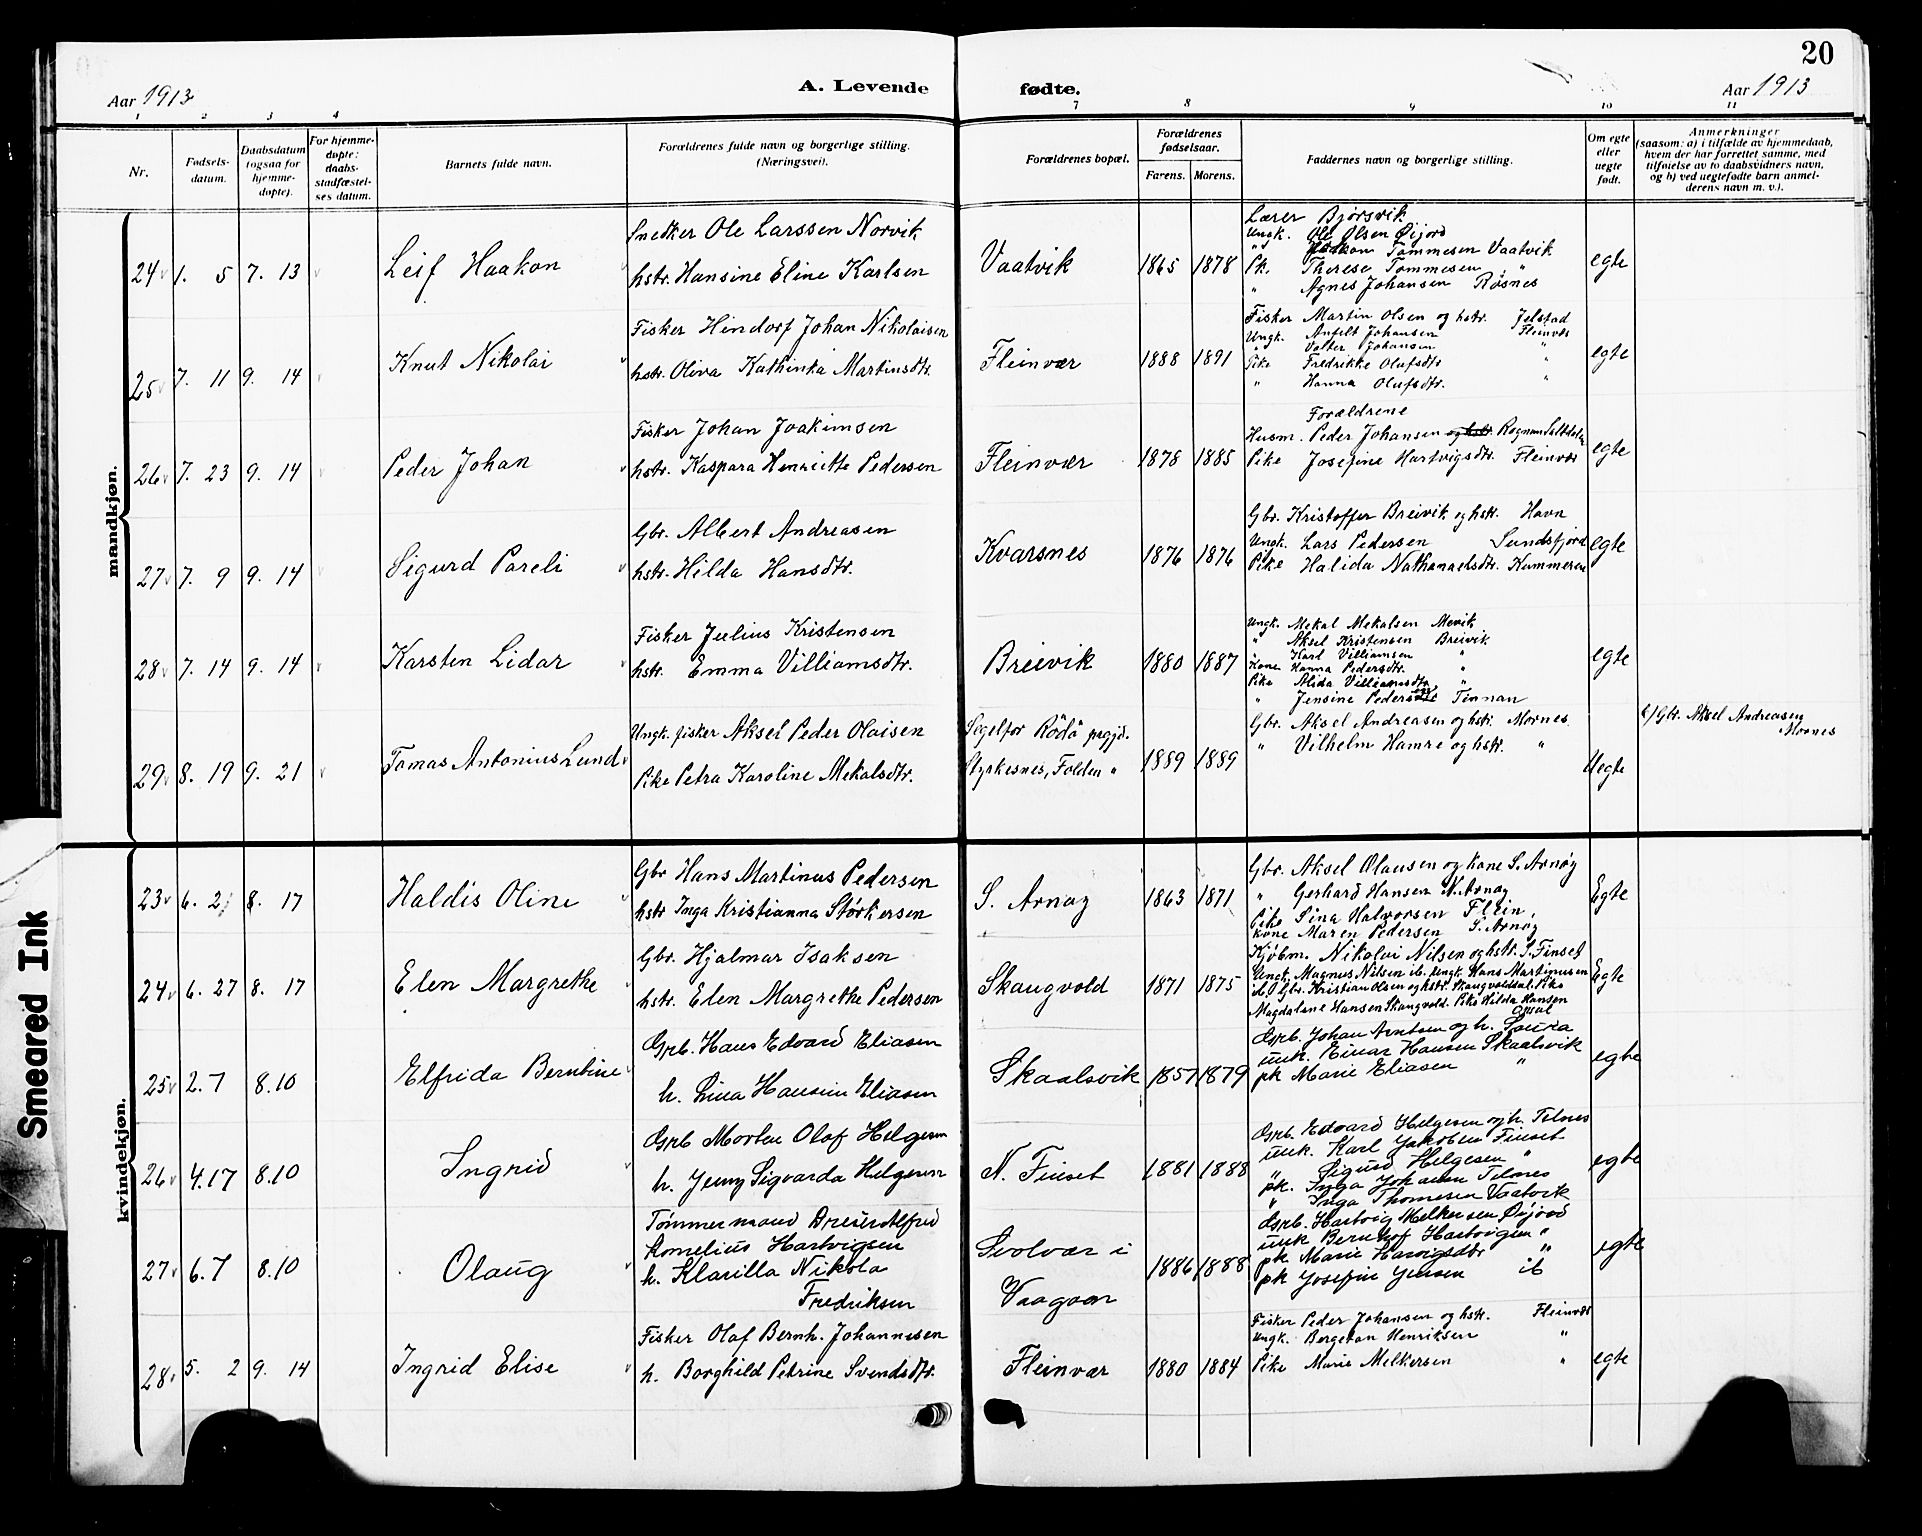 20
Aar 1913
A. Levende
fødte.
Aar 1913
1 2 3 4 7 8 9 10 11
Nr.
Fødsels-
datum.
Daabsdatum
(ogsaa for
hjemme-
døpte).
For hjemme-
døpte:
daabs-
stadfæstel-
ses datum.
Barnets fulde navn.
Forældrenes fulde navn og borgerlige stilling.
(Næringsvei).
Forældrenes bopæl.
Forældrenes
fødselsaar.
Farens. Morens.
Faddernes navn og borgerlig stilling.
Om egte
eller
uegte
født.
Anmerkninger
(saasom: a) i tilfælde av hjemmedaab,
hvem der har forrettet samme, med
tilføielse av to daabsvidners navn,
og b) ved uegtefødte barn anmel-
derens navn m. v.).
mandkjøn.
24 1. 5 7. 13 Leif Haakon
Snedker Ole Larssen Norvik
hstr. Hansine Eline Karlsen
Vaatvik 1865 1878
Lærer Bjørsvik
Ungk. Ole Olsen Øijord
" Haakon Tommesen Vaatvik
Pk. Therese Tommesen "
" Agnes Johansen Røsnes
egte
25 7. 11 9. 14 Knut Nikolai
Fisker Hindorf Johan Nikolaisen
hstr. Oliva Kathinka Martinsdtr.
Fleinvær 1888 1891
Fisker Martin Olsen og hstr. Jelstad
Ungk. Anfelt Johansen Fleinvær
" Valter Johansen "
Pike Fredrikke Olufsdtr "
" Hanna Olufsdtr. "
egte
26 7. 23 9. 14 Peder Johan
Fisker Johan Joakimsen
hstr. Kaspara Henriette Pedersen
Fleinvær 1878 1885
Forældrene
Husm. Peder Johansen og hstr. Rognan Saltdalen
Pike Josefine Hartvigsdtr. Fleinvær
egte
27 7. 9 9. 14 Sigurd Pareli
Gbr. Albert Andreasen
hstr. Hilda Hansdtr.
Kvarsnes 1876 1876
Gbr. Kristoffer Breivik og hstr. Havn
Ungk. Lars Pedersen Sundsfjord
Pike Halida Nathanaelsdtr. Kummeren
egte
28 7. 14 9. 14 Karsten Lidar
Fisker Julius Kristensen
hstr. Emma Villiamsdtr.
Breivik 1880 1887
Ungk. Mekal Mekalsen Mevik
" Aksel Kristensen Breivik
" Karl Villiamsen "
Kone Hanna Pedersdtr. "
Pike Alida Villiamsdtr. "
" Jensine Pedersdtr Finnan
egte
29 8. 19 9. 21 Tomas Antonius Lund
Ungk. fisker Aksel Peder Olaisen
Pike Petra Karoline Mekalsdtr.
Segelfor Rödö prgjd.
Styrkesnes, Folden "
1889 1889
Gbr. Aksel Andreasen og hstr. Mornes
" Vilhelm Hamre og hstr. "
Uegte
b) Gbr. Aksel Andreasen
Mornes
kvindekjøn.
23 6. 2 8. 17 Haldis Oline
Gbr Hans Martinus Pedersen
hstr Inga Kristianna Størkersen
S. Arnøy 1863 1871
Gbr. Aksel Olausen og kone S. Arnøy
" Gerhard Hansen N. Arnøy
Pike Sina Halvorsen Flein.
Kone Maren Pedersen S. Arnøy
Egte
24 6. 27 8. 17 Elen Margrethe
Gbr. Hjalmar Isaksen
hstr. Elen Margrethe Pedersen
Skaugvold 1871 1875
Kjøbm. Nikolai Nilsen og hstr. S. Finset
Ungk. Magnus Nilsen ib. Ungk. Hans Martinusen
ib. Gbr. Kristian Olsen og hstr. Skaugvoldal. Pike
Magdalene Hansen Skaugvold. Pike Hilda Hansen
Egte
25 2. 7 8. 10 Elfrida Berntine
Grb. Hans Edvard Eliasen
h. Lina Hansine Eliasen
Skaalsvik 1857 1879
Grb. Johan Arntsen og h. Soura
unk. Einar Hansen Skaalsvik
pk Marie Eliasen "
egte
26 4. 17 8. 10 Ingrid
Grb Morten Olaf Helgesen
h. Jenny Sigvarda Helgesen
N. Finset 1881 1888
Grb. Edvard Helgesen og h. Telnes
unk. Karl Jakobsen Finset
" Sigurd Helgesen "
pk. Inga Johansen Telnes
" Inga Thomesen Vaatvik
egte
27 6. 7 8. 10 Olaug
Tømmermand Dreier Alfred
Kornelius Hartvigsen
h. Klarilla Nikola
Fredriksen
Svolvær i
Vaagan
1886 1888
Grb. Hartvig Melkersen Øijord
unk Bernhof Hartvigsen "
pk Marie Harvigsdtr "
pk Josefine Jensen ib
egte
28 5. 2 9. 14 Ingrid Elise
Fisker Olaf Bernh. Johannesen
h. Borghild Petrine Svendsdtr.
Fleinvær 1880 1884
Fisker Peder Johansen og hstr. Fleinvær
Ungk. Bergeton Henriksen "
Pike Marie Melkersen "
egte
Smeared Ink